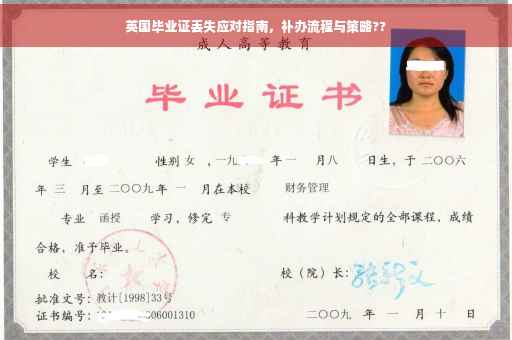 英国毕业证丢失应对指南，补办流程与策略??
成人高等教育
毕业证书
学生 性别 女 ，一九 年 一 月 八 日生，于 二〇〇六
年 三 月至 二〇〇九 年 一 月在本校 财务管理
专业 函授 学习，修完 专 科教学计划规定的全部课程，成绩
合格，准予毕业。
校 名： 校（院）长：
批准文号：教计[1998]33号
证书编号： 06001310 二〇〇九 年 一 月 十 日